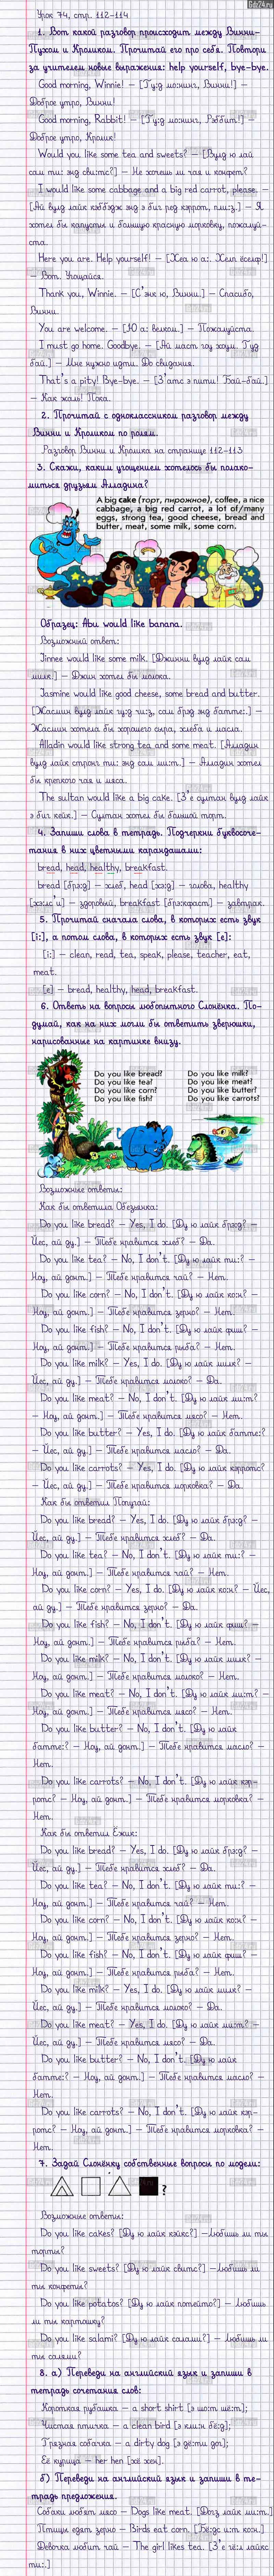 Урок 74, стр. 112-114
1. Вот какой разговор происходит между Винни-
Пухом и Кроликом. Прочитай его про себя. Повтори
за учителем новые выражения: help yourself, bye-bye.
Good morning, Winnie! – [Гу:д монинг, Винни!] –
Доброе утро, Винни!
Good morning, Rabbit! – [Гу:д монинг, Рэббит!] –
Доброе утро, Кролик!
Would you like some tea and sweets? – [Вулд ю лай
сам ти: энд сви:тс?] – Не хочешь ли чая и конфет?
I would like some cabbage and a big red carrot, please. –
[Ай вулд лайк кэббэдж энд э биг ред кэррот, пли:з.] – Я
хотел бы капусты и большую красную морковку, пожалуй-
ста.
Here you are. Help yourself! – [Хеа ю а:. Хелп ёселф!]
– Вот. Угощайся.
Thank you, Winnie. – [С'энк ю, Винни.] – Спасибо,
Винни.
You are welcome. – [Ю а: велком.] – Пожалуйста.
I must go home. Goodbye. – [Ай маст гоу хоум. Гуд
бай.] – Мне нужно идти. До свидания.
That's a pity! Bye-bye. – [З'атс э пити! Бай-бай.]
– Как жаль! Пока.
2. Прочитай с одноклассником разговор между
Винни и Кроликом по ролям.
Разговор Винни и Кролика на странице 112-113
3. Скажи, каким угощением хотелось бы полако-
миться друзьям Алладина?
A big cake (торт, пирожное), coffee, a nice
cabbage, a big red carrot, a lot of/many
eggs, strong tea, good cheese, bread and
butter, meat, some milk, some corn.
Образец: Abu would like banana.
Возможный ответ:
Jinnee would like some milk. [Джинни вулд лайк сам
милк.] – Джин хотел бы молока.
Jasmine would like good cheese, some bread and butter.
[Жасмин вулд лайк гу:д чи:з, сам брэд энд баттe:.] –
Жасмин хотела бы хорошего сыра, хлеба и масла.
Alladin would like strong tea and some meat. [Алладин
вулд лайк стронг ти: энд сам ми:т.] – Алладин хотел
бы крепкого чая и мяса.
The sultan would like a big cake. [З'е султан вулд лайк
э биг кейк.] – Султан хотел бы большой торт.
4. Запиши слова в тетрадь. Подчеркни буквосоче-
тания в них цветными карандашами:
bread, head, healthy, breakfast.
bread [брэд] – хлеб, head [хэд] – голова, healthy
– здоровый, breakfast [брэкфаст] – завтрак.
5. Прочитай сначала слова, в которых есть звук
[i:], а потом слова, в которых есть звук [e]:
[i:] – clean, read, tea, speak, please, teacher, eat,
meat.
[e] – bread, healthy, head, breakfast.
6. Ответь на вопросы любопытного Слонёнка. По-
думай, как на них могли бы ответить зверюшки,
нарисованные на картинке внизу.
Do you like bread?
Do you like tea?
Do you like corn?
Do you like fish?
Do you like milk?
Do you like meat?
Do you like butter?
Do you like carrots?
Возможные ответы:
Как бы ответила Обезьянка:
Do you like bread? – Yes, I do. [Ду ю лайк брэд? –
Йес, ай ду.] – Тебе нравится хлеб? – Да.
Do you like tea? – No, I don't. [Ду ю лайк ти:? –
Ноу, ай донт.] – Тебе нравится чай? – Нет.
Do you like corn? – No, I don't. [Ду ю лайк ко:н? –
Ноу, ай донт.] – Тебе нравится зерно? – Нет.
Do you like fish? – No, I don't. [Ду ю лайк фиш? –
Ноу, ай донт.] – Тебе нравится рыба? – Нет.
Do you like milk? – Yes, I do. [Ду ю лайк милк? –
Йес, ай ду.] – Тебе нравится молоко? – Да.
Do you like meat? – No, I don't. [Ду ю лайк ми:т?
– Ноу, ай донт.] – Тебе нравится мясо? – Нет.
Do you like butter? – Yes, I do. [Ду ю лайк баттe:?
– Йес, ай ду.] – Тебе нравится масло? – Да.
Do you like carrots? – Yes, I do. [Ду ю лайк кэрротс?
– Йес, ай ду.] – Тебе нравится морковка? – Да.
Как бы ответил Попугай:
Do you like bread? – Yes, I do. [Ду ю лайк брэд? –
Йес, ай ду.] – Тебе нравится хлеб? – Да.
Do you like tea? – No, I don't. [Ду ю лайк ти:? –
Ноу, ай донт.] – Тебе нравится чай? – Нет.
Do you like corn? – Yes, I do. [Ду ю лайк ко:н? – Йес,
ай ду.] – Тебе нравится зерно? – Да.
Do you like fish? – No, I don't. [Ду ю лайк фиш? –
Ноу, ай донт.] – Тебе нравится рыба? – Нет.
Do you like milk? – No, I don't. [Ду ю лайк милк? –
Ноу, ай донт.] – Тебе нравится молоко? – Нет.
Do you like meat? – No, I don't. [Ду ю лайк ми:т? –
Ноу, ай донт.] – Тебе нравится мясо? – Нет.
Do you like butter? – No, I don't. [Ду ю лайк
баттe:? – Ноу, ай донт.] – Тебе нравится масло? –
Нет.
Do you like carrots? – No, I don't. [Ду ю лайк кэр-
ротс? – Ноу, ай донт.] – Тебе нравится морковка? –
Нет.
Как бы ответил Ёжик:
Do you like bread? – Yes, I do. [Ду ю лайк брэд? –
Йес, ай ду.] – Тебе нравится хлеб? – Да.
Do you like tea? – No, I don't. [Ду ю лайк ти:? –
Ноу, ай донт.] – Тебе нравится чай? – Нет.
Do you like corn? – No, I don't. [Ду ю лайк ко:н? –
Ноу, ай донт.] – Тебе нравится зерно? – Нет.
Do you like fish? – No, I don't. [Ду ю лайк фиш? –
Ноу, ай донт.] – Тебе нравится рыба? – Нет.
Do you like milk? – Yes, I do. [Ду ю лайк милк? –
Йес, ай ду.] – Тебе нравится молоко? – Да.
Do you like meat? – Yes, I do. [Ду ю лайк ми:т? –
Йес, ай ду.] – Тебе нравится мясо? – Да.
Do you like butter? – No, I don't. [Ду ю лайк
баттe:? – Ноу, ай донт.] – Тебе нравится масло? –
Нет.
Do you like carrots? – No, I don't. [Ду ю лайк кэр-
ротс? – Ноу, ай донт.] – Тебе нравится морковка? –
Нет.
7. Задай Слонёнку собственные вопросы по модели:
?
Возможные ответы:
Do you like cakes? [Ду ю лайк кэйкс?] – Любишь ли ты
торты?
Do you like sweets? [Ду ю лайк свитс?] – Любишь ли
ты конфеты?
Do you like potatos? [Ду ю лайк потейто?] – Любишь
ли ты картошку?
Do you like salami? [Ду ю лайк салами?] – Любишь ли
ты салями?
8. а) Переведи на английский язык и запиши в
тетрадь сочетания слов:
Короткая рубашка – a short shirt [э шо:т шё:т];
Чистая птичка – a clean bird [э кли:н бё:д];
Грязная собачка – a dirty dog [э дё:ти дог];
Её курица – her hen [хё хен].
б) Переведи на английский язык и запиши в те-
традь предложения.
Собаки любят мясо – Dogs like meat. [Догз лайк ми:т.]
Птицы едят зерно – Birds eat corn. [Бё:дс и:т ко:н.]
Девочка любит чай – The girl likes tea. [З'е гё:л лайкс
ти:.]